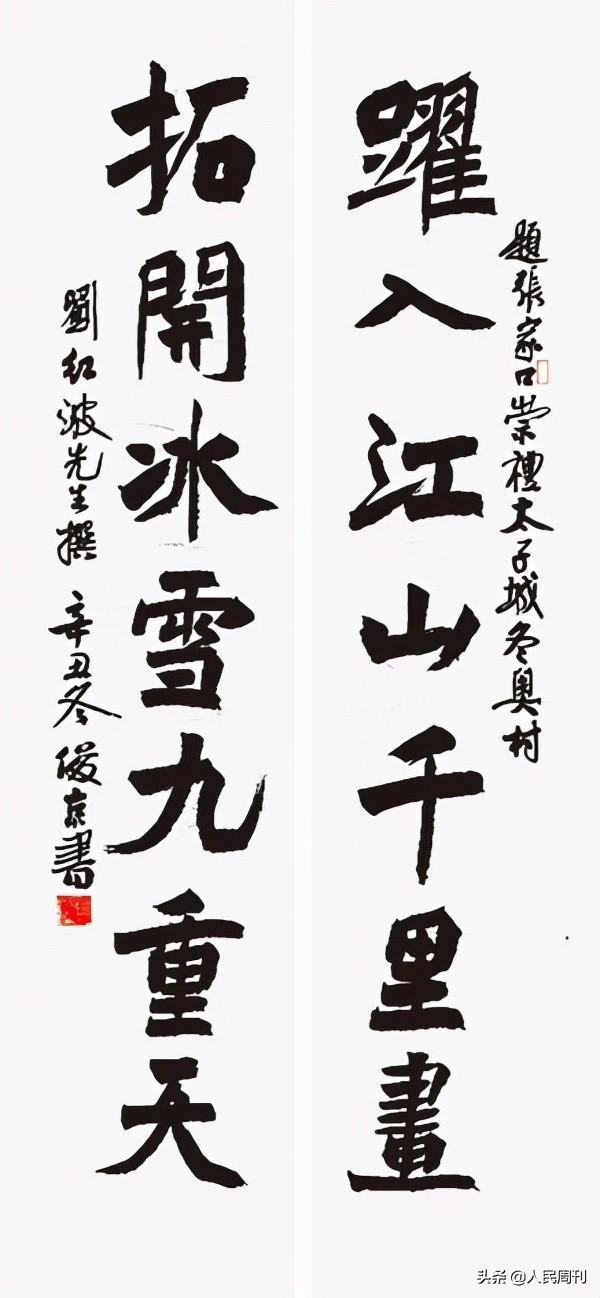 題張家口崇禮太子城冬奧村
躍入江山千里畫
拓開冰雪九重天
劉紅波先生撰 辛丑冬 俊京書
头条 @人民周刊